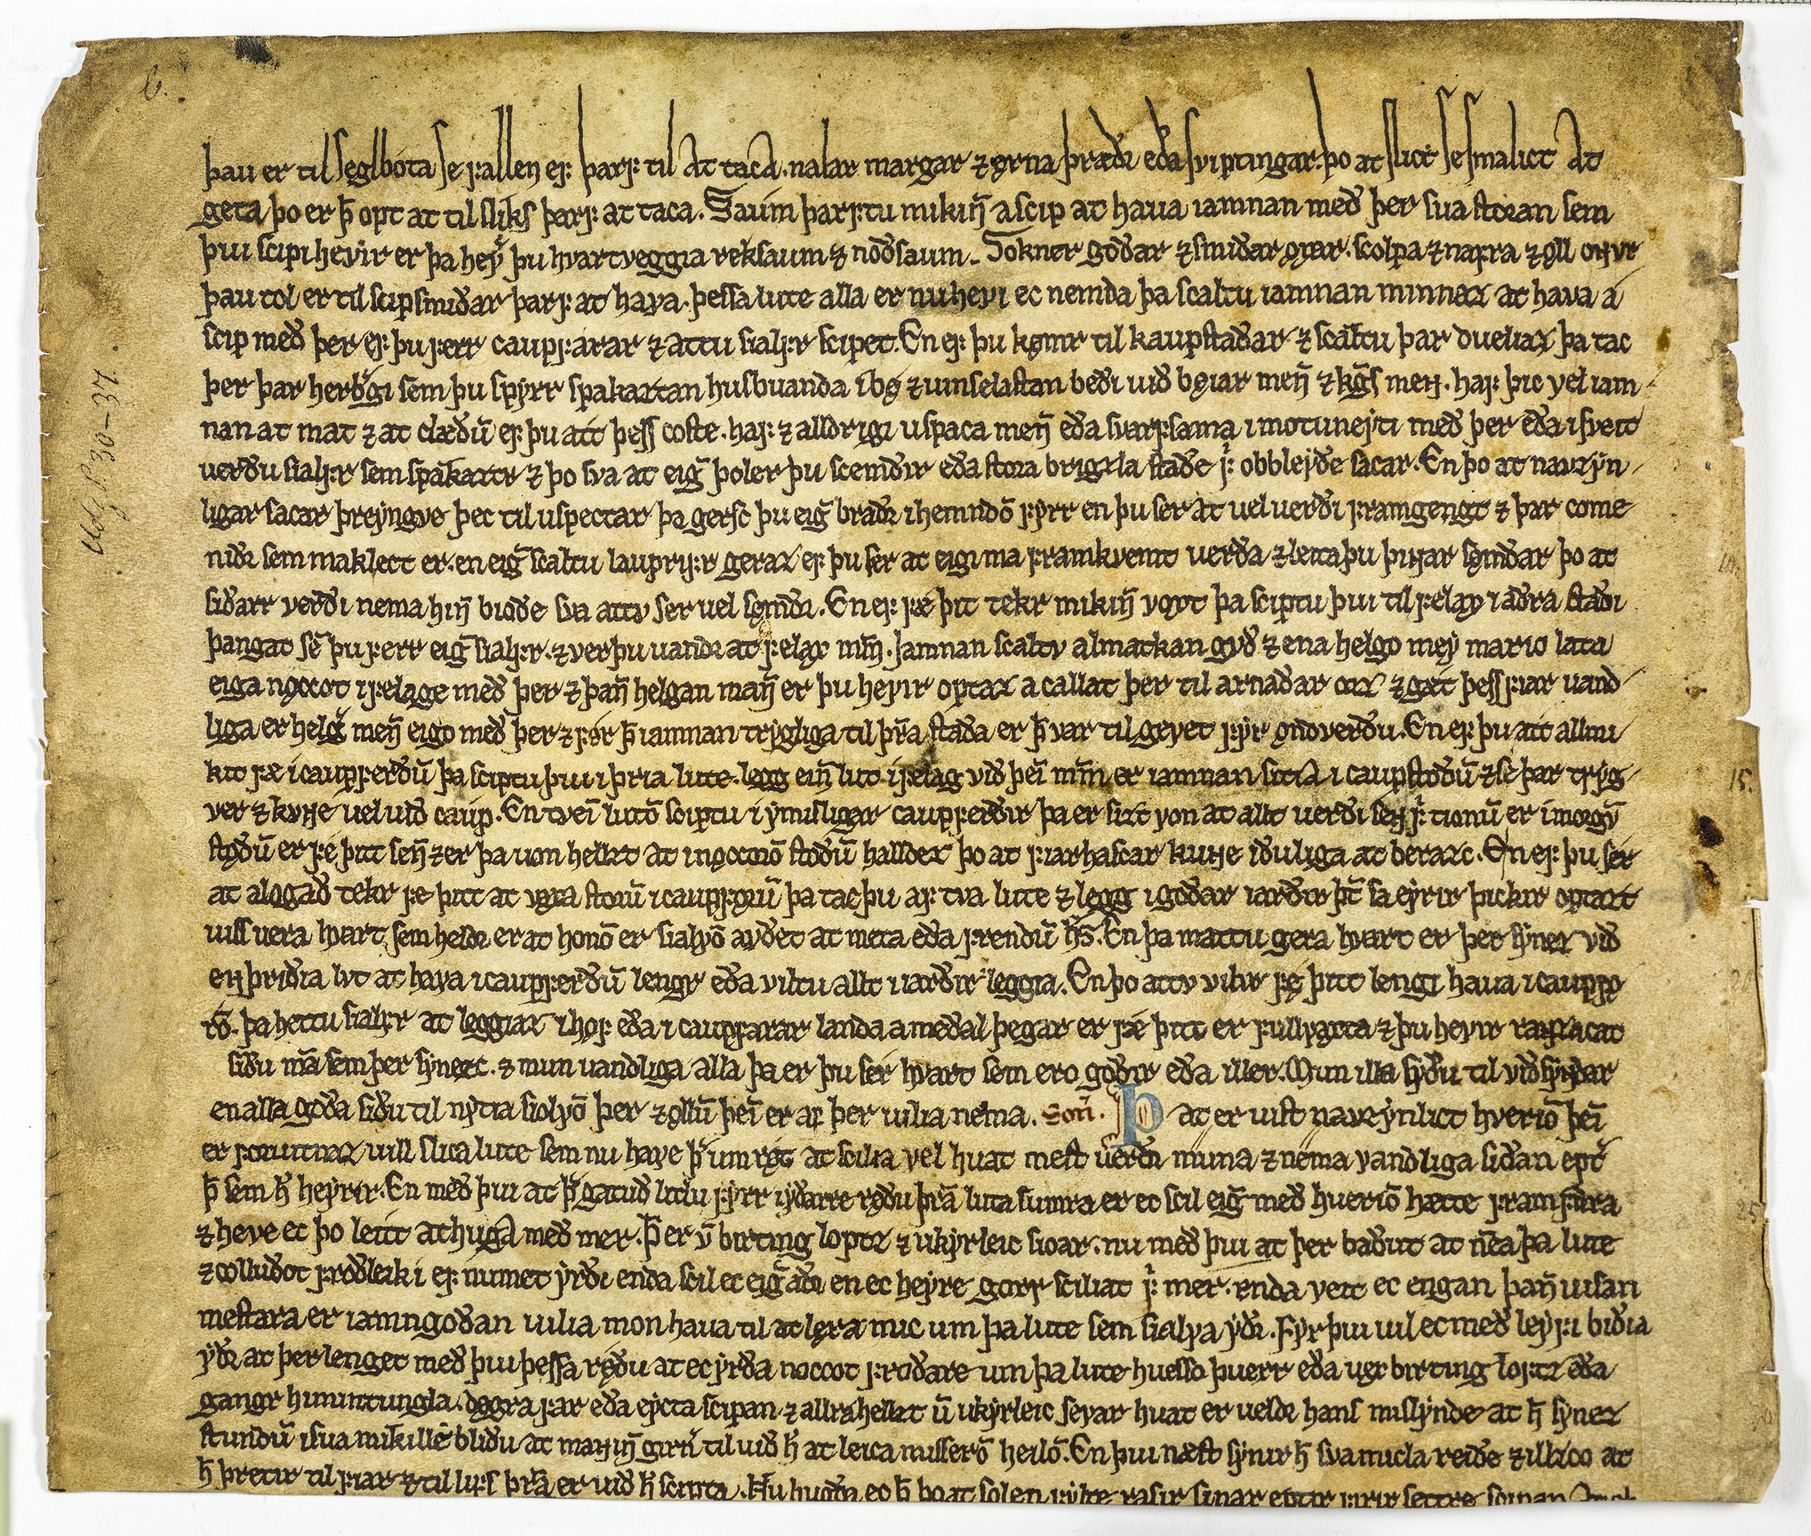 þau er til seglbóta se fallen ef þarf til at taca. nalar margar ⁊ ǫrna þræðe eða sviptingar. þo at slict se smalict at
geta þo er þ̄ opt at til sliks þarf at taca. Saum þarftu mikiɴ̄ a scip at hava iamnan með þer sua storan sem
þui scipi hevir er þa hevͬ þu hvartveggia reksaum ⁊ noðsaum. Sokner goðar ⁊ smiðar øxar. scolpa ⁊ nafra ⁊ ǫll ɵɴvr
þau tol er til scipsmiðar þarf at hava. þessa lute alla er nu hevi ec nemda þa scaltu iamnan minnaz at hava á
scip með þer ef þu ferr caupfarar ⁊ attu sialfr scipet. En ef þu kømr til kaupstaðar ⁊ scaltu þar dueliaz þa tac
þer þar herbͬgi sem þu spyrr spakaztan husbuanda i bø ⁊ uinselastan beði uið bøiar meɴ̄ ⁊ kḡs meɴ. haf þic vel iam
nan at mat ⁊ at clæðū ef þu átt þess coste. haf ⁊ alldrigi uspaca meɴ̄ eða svarfsama i motuneyti með þer eða i sveit
verðu sialfr sem spakaztr ⁊ þo sva at eig̅ þoler þu scemðir eða stora brigzla staðe fͬ obbleyðe sacar. En þo at navzyn
ligar sacar þreyngve þec til uspectar þa gersc þu eig̅ braðr i hemndō fyrr en þu ser at uel uerði framgengt ⁊ þar come
niðr sem maklect er. en eig̅ scaltu lauprifr geraz ef þu ser at eigi ma framkvemt verða ⁊ leita þu þiɴar sǫmðar þo at
siðarr verði nema hiɴ̄ bioðe sva attv ser uel sømði. En ef fé þit tekr mikiɴ̄ voxt þa sciptu þui til felax i aðra staði
þangat sē þu ferr eig̅ sialfr. ⁊ ver þu uandr at felax mm̄. Jamnan scaltv almatkan gvð ⁊ ena helgo mey mario lata
eiga nǫccot i felage með þer ⁊ þaɴ̄ helgan maɴ̄ er þu hevir optaz a callat þer til arnaðar orz ⁊ gæt þess fiar uand
liga er helgͬ meɴ̄ eigo með þer ⁊ fǿr þ̄ iamnan trygliga til þr̄a staða er þ̄ var til gevet fyr ondverðu. En ef þu átt allmi
kit fæ i caupferðū þa sciptu þui i þria lute. legg eiɴ̄ lut i felag við þei mm̄ er iamnan sitia i caupstoðū ⁊ se þar tryg
ver ⁊ kvɴe uel uið caup. En tveī lutō sciptu i ymisligar caupferðir þa er sizt von at allt uerði seɴ fͬ tionū er i morgū
støðū er fé þitt seɴ̄ ⁊ er þa uon hellzt at i nǫccorō stoðū halldez þo at fiarhascar kuɴe iðuliga at berazc. En ef þu ser
at alogað tekr fe þitt at vaxa storū i caupforū þa tac þu af tva lute ⁊ legg i goðar iarðir þt̄ sa eyrir þickir optazt
uiss uera hvart sem heldr er at honō er sialvō avðet at meta eða frendū h̄s. En þa mattu gera hvart er þer synez við
eɴ þriðia lvt at hava i caupferðū lengr eða viltu allt i iarðir leggia. En þo attv vilir fę þitt lengi haua i caupfø
rō. þa hettu sialfr at leggiaz i hof eða i caupfarar landa a meðal þegar er fæ þitt er fullvaxta ⁊ þu hevir raɴzacat
siðu mā sem þer synezc. ⁊ mun uandliga alla þa er þu sér hvart sem ero goðir eða iller. Mun illa syðu til viðsyndar
en alla goða siðu til nytia siolvō þer ⁊ ollū þei er af þer uilia nema. Son̄. Þat er uist navzynlict hveriō þeī
er forvitnaz uill slica lute sem nu have þͬ um rǿt at scilia vel huat mest uerðr muna ⁊ nema vandliga siðan eptͬ
þ̄ sem h̄ heyrir. En með þui at þͬ gatuð litlu fyrr i yðarre rǿðu þrā luta sumra er ec scil eig̅ með hueriō hætte framfara
⁊ heve ec þo leitt at huga með mer. Þ̄ er ū birting loptz ⁊ ukyrleic sioar. nu með þui at þer baðut at nēa þa lute
⁊ colluðot froðleik i ef numet yrði enda scil ec eig̅ aðr en ec heyre gorr sciliat fͬ mer. enda veit ec engan þaɴ̄ uisan
mestara er iamngoðan uilia mon haua til at lǫra mic um þa lute sem sialva yðr. Fyr þui uil ec með leyvi biðia
yðr at þer lenget með þui þessa rǿðu at ec yrða noccot froðare um þa lute huesso þuerr eða uex birting loftz eða
gangr himintungla. dǿgra far eða eycta scipan ⁊ allra hellzt ū ukyrleic sevar huat er uelde hans mislynde at h̄ synez
stundū i sua mikille bliðu at maɴiɴ̄ girn̄ til uið h̄ at leica misserō heilō. En þui næst synir h̄ sva mucla reiðe ⁊ illzco at
h̄ þretir til fiar ⁊ til lifs þrā er uið h̄ scipta. Nu hugða ec þ̄ þo at solen fylte rasir sinar eptir